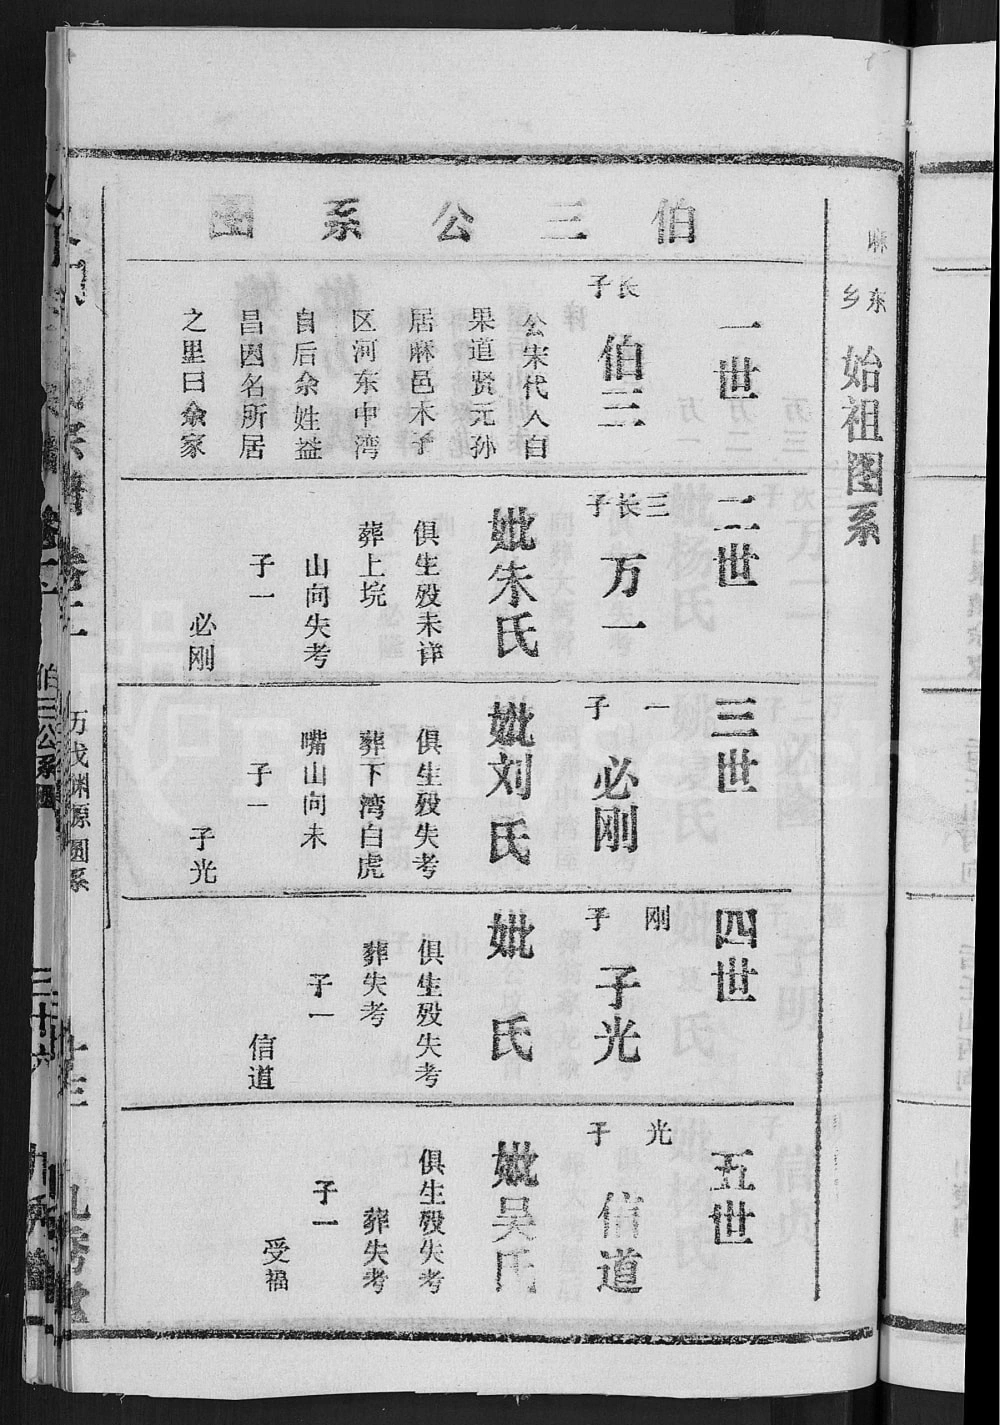 麻
东乡
始祖图系
伯三公系图
一世
长子
伯三
公宋代人自
果道贤元孙
居麻邑木子
区河东中湾
自后余姓益
昌因名所居
之里曰余家
二世
三长子
万一
妣朱氏
俱生殁未详
葬上垸
山向失考
子一
必刚
三世
一子
必刚
妣刘氏
俱生殁失考
葬下湾白虎
嘴山向未
子一
子光
四世
刚子
子光
妣 氏
俱生殁失考
葬失考
子一
信道
五世
光子
信道
妣吴氏
俱生殁失考
葬失考
子一
受福
历代渊源图系
伯三公系图
三十六